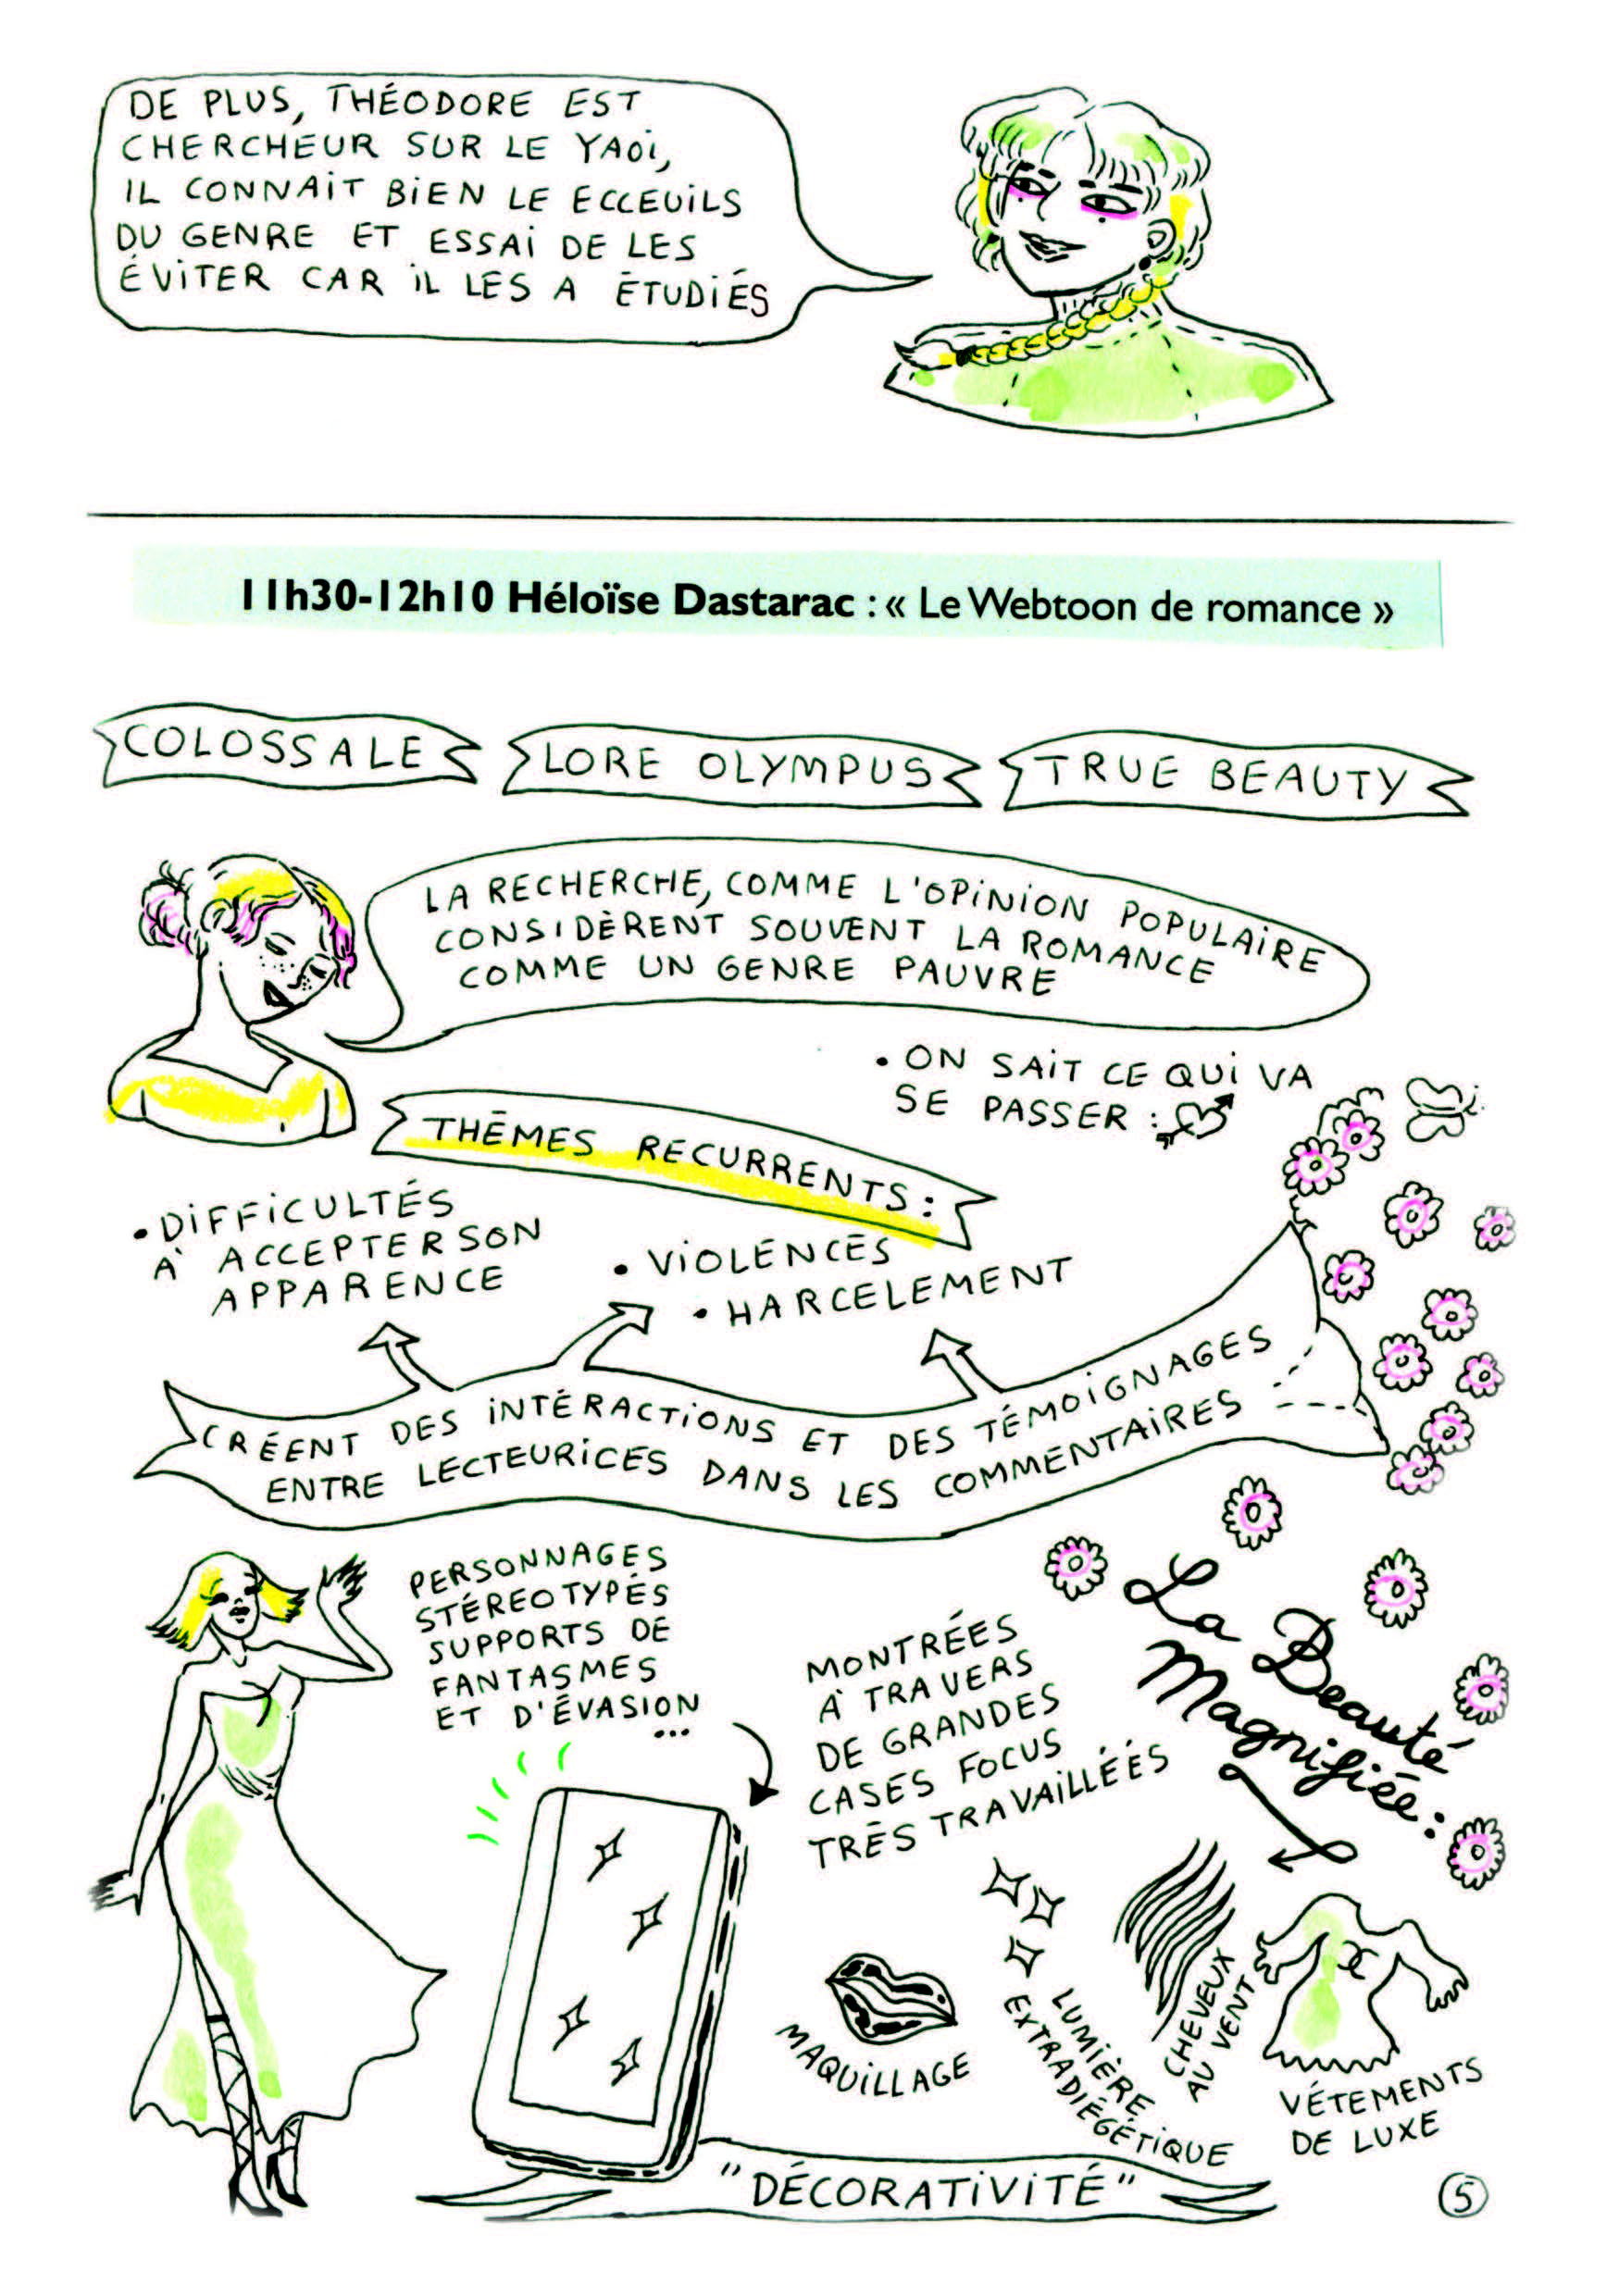 DE PLUS, THÉODORE EST
CHERCHEUR SUR LE YAOI,
IL CONNAIT BIEN LE ECCEUILS
DU GENRE ET ESSAI DE LES
ÉVITER CAR IL LES A ÉTUDIÉS
11h30-12h10 Héloïse Dastarac : « Le Webtoon de romance »
COLOSSALE
LORE OLYMPUS
TRUE BEAUTY
LA RECHERCHE, COMME L'OPINION POPULAIRE
CONSIDÈRENT SOUVENT LA ROMANCE
COMME UN GENRE PAUVRE
• ON SAIT CE QUI VA
SE PASSER :
THÈMES RECURRENTS :
• DIFFICULTÉS
À ACCEPTER SON
APPARENCE
• VIOLENCES
• HARCELEMENT
CRÉENT DES INTÉRACTIONS ET DES TÉMOIGNAGES
ENTRE LECTEURICES DANS LES COMMENTAIRES
PERSONNAGES
STÉREOTYPÉS
SUPPORTS DE
FANTASMES
ET D'ÉVASION
...
MONTRÉES
À TRAVERS
DE GRANDES
CASES FOCUS
TRÈS TRAVAILLÉÉS
La Beauté
Magnifiée :
MAQUILLAGE
LUMIÈRE
EXTRADIÉGÉTIQUE
CHEVEUX
AU VENT
VÉTEMENTS
DE LUXE
"DÉCORATIVITÉ"
5